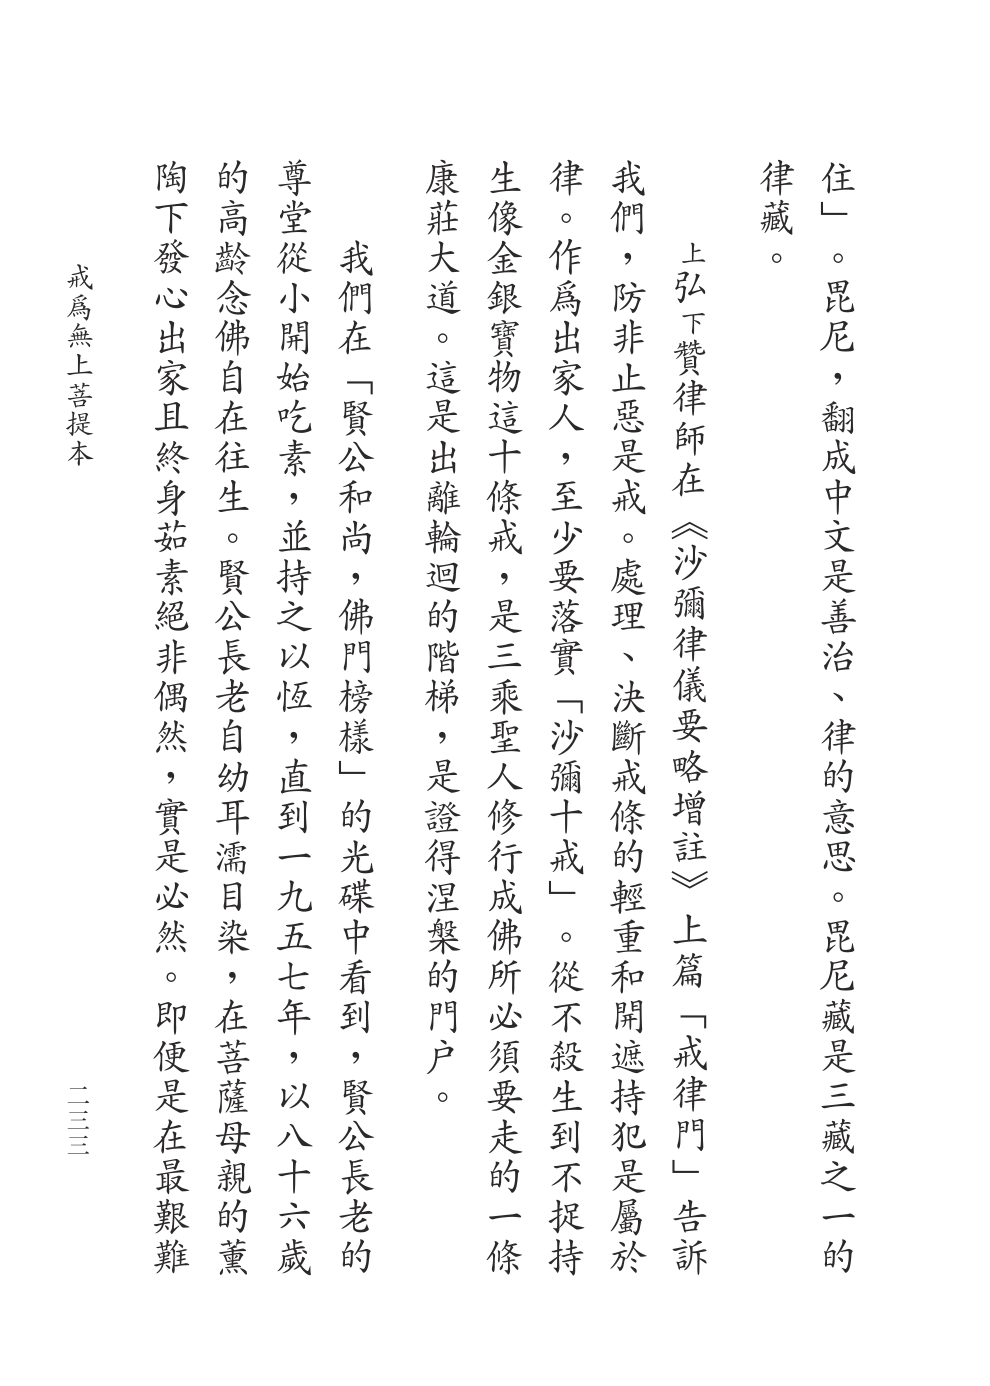 住」。毘尼，翻成中文是善治、律的意思。毘尼藏是三藏之一的
律藏。
上弘下贊律師在《沙彌律儀要略增註》上篇「戒律門」告訴
我們，防非止惡是戒。處理、決斷戒條的輕重和開遮持犯是屬於
律。作爲出家人，至少要落實「沙彌十戒」。從不殺生到不捉持
生像金銀寶物這十條戒，是三乘聖人修行成佛所必須要走的一條
康莊大道。這是出離輪迴的階梯，是證得涅槃的門户。
我們在「賢公和尚，佛門榜樣」的光碟中看到，賢公長老的
尊堂從小開始吃素，並持之以恆，直到一九五七年，以八十六歲
的高齡念佛自在往生。賢公長老自幼耳濡目染，在菩薩母親的薰
陶下發心出家且終身茹素絕非偶然，實是必然。即便是在最艱難
戒爲無上菩提本
二三三